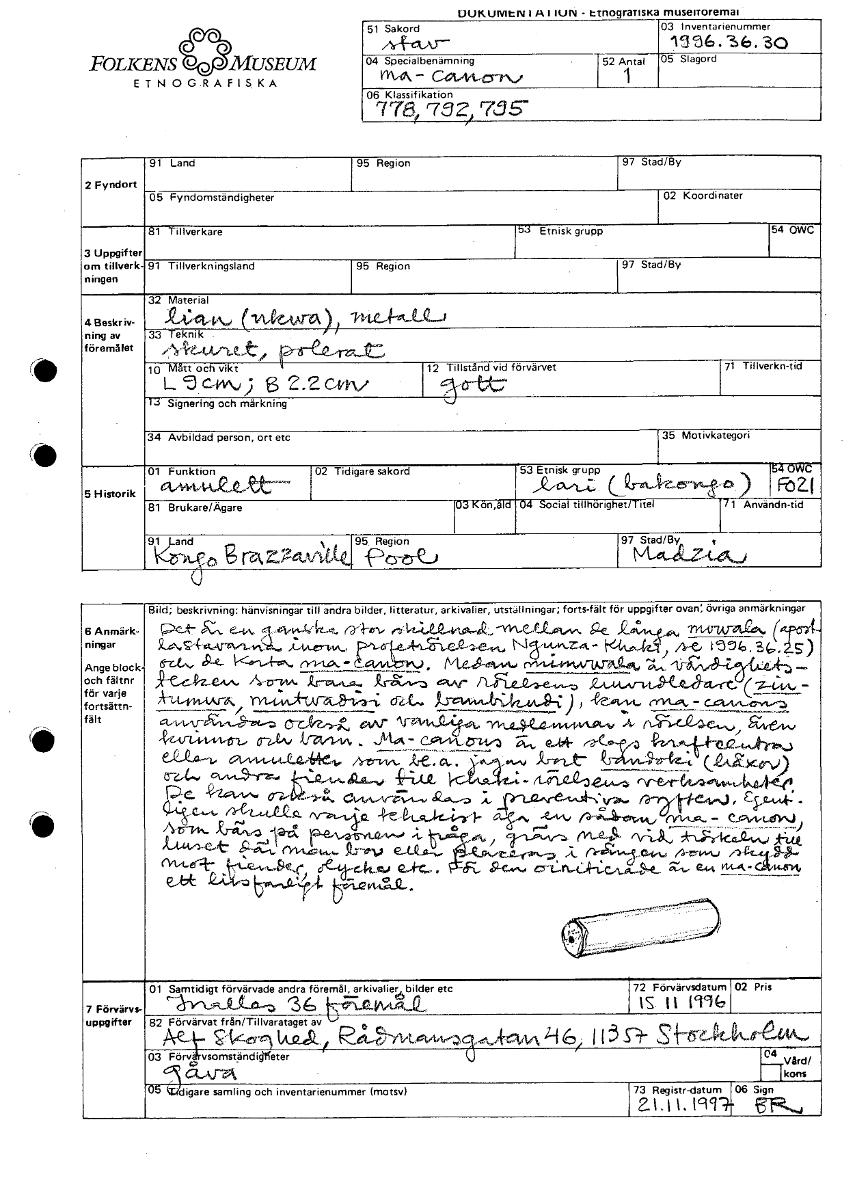 DOKUMENTATION - Etnografiska museiföremål
FOLKENS MUSEUM
ETNOGRAFISKA
51 Sakord
stav
03 Inventarienummer
1996.36.30
04 Specialbenämning
ma-canon
52 Antal
1
05 Slagord
06 Klassifikation
778, 792, 795
2 Fyndort
91 Land
95 Region
97 Stad/By
05 Fyndomständigheter
02 Koordinater
3 Uppgifter om tillverk-ningen
81 Tillverkare
53 Etnisk grupp
54 OWC
91 Tillverkningsland
95 Region
97 Stad/By
4 Beskriv-ning av föremålet
32 Material
lian (nkwa), metall
33 Teknik
skuret, polerat
10 Mått och vikt
L 9 cm; B 2.2 cm
12 Tillstånd vid förvärvet
gott
71 Tillverkn-tid
13 Signering och märkning
34 Avbildad person, ort etc
35 Motivkategori
5 Historik
01 Funktion
amulett
02 Tidigare sakord
53 Etnisk grupp
lari (bakongo)
54 OWC
FO21
81 Brukare/Ägare
03 Kön,åld
04 Social tillhörighet/Titel
71 Användn-tid
91 Land
Kongo Brazzaville
95 Region
Pool
97 Stad/By
Madzia
6 Anmärk-ningar
Ange block- och fältnr för varje fortsättn-fält
Bild; beskrivning; hänvisningar till andra bilder, litteratur, arkivalier, utställningar; forts-fält för uppgifter ovan; övriga anmärkningar
Det är en ganska stor skillnad mellan de långa mvwala (apost-
lastavarna inom profetrörelsen Ngunza-Khaki, se 1996.36.25)
och de korta ma-canon. Medan mimvwala är värdighets-
tecken som bara bärs av rörelsens huvudledare (zin-
tumwa, mintwadisi och bambikudi), kan ma-canons
användas också av vanliga medlemmar i rörelsen, även
kvinnor och barn. Ma-canons är ett slags kraftcentra
eller amuletter som bl.a. jagar bort bandoki (häxor)
och andra fiender till Khaki-rörelsens verksamheter.
De kan också användas i preventiva syften. Egent-
ligen skulle varje khakist äga en sådan ma-canon,
som bärs på personen i fråga, grävs ned vid tröskeln till
huset där man bor eller placeras i sängen som skydd
mot fiender, olycka etc. För den oinitierade är en ma-canon
ett livsfarligt föremål.
7 Förvärvs-uppgifter
01 Samtidigt förvärvade andra föremål, arkivalier, bilder etc
Inalles 36 föremål
72 Förvärvsdatum
15 11 1996
02 Pris
82 Förvärvat från/Tillvarataget av
Alf Skoghed, Rådmansgatan 46, 11357 Stockholm
03 Förvärvsomständigheter
gåva
04
Vård/kons
05 Tidigare samling och inventarienummer (motsv)
73 Registr-datum
21.11.1997
06 Sign
BR